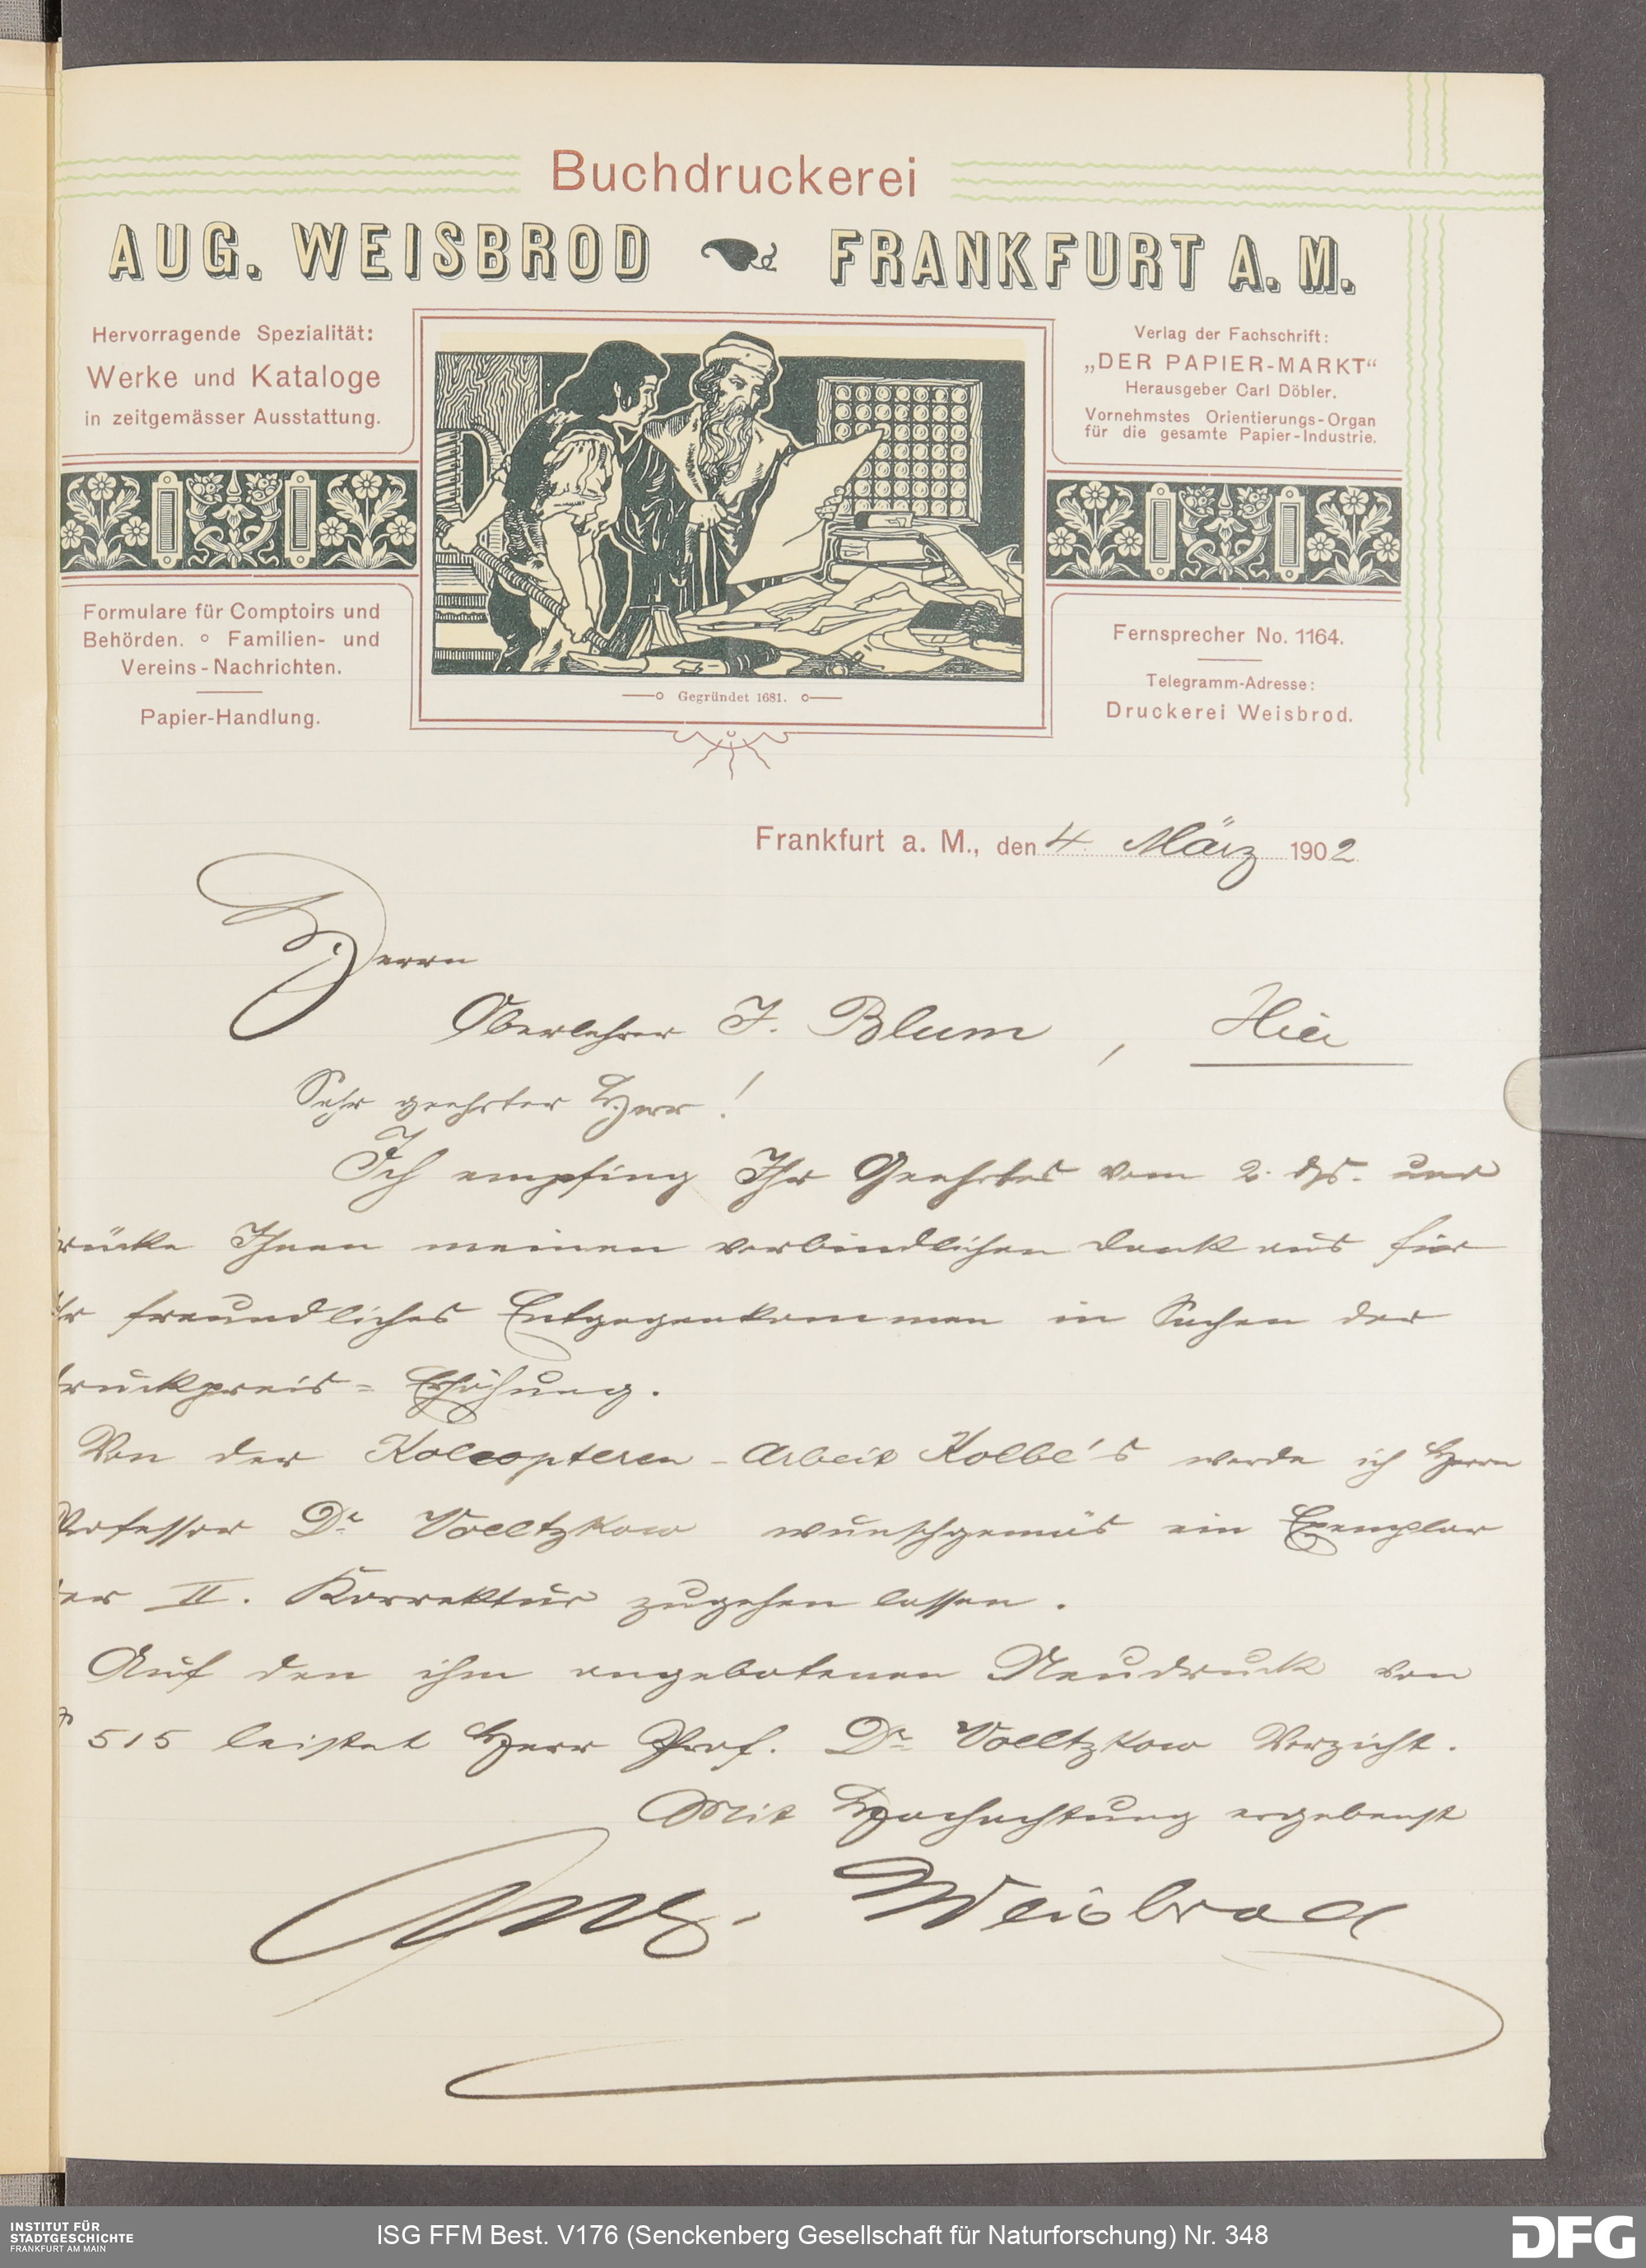 Buchdruckerei
AUG. WEISBROD FRANKFURT A. M.
Hervorragende Spezialität:
Werke und Kataloge
in zeitgemässer Ausstattung.
Formulare für Comptoirs und
Behörden. ° Familien- und
Vereins-Nachrichten.
Papier-Handlung.
Gegründet 1681.
Verlag der Fachschrift:
„DER PAPIER-MARKT“
Herausgeber Carl Döbler.
Vornehmstes Orientierungs-Organ
für die gesamte Papier-Industrie.
Fernsprecher No. 1164.
Telegramm-Adresse:
Druckerei Weisbrod.
Frankfurt a. M., den 4. März 1902
Herrn
Oberlehrer J. Blum, Hier
Sehr geehrter Herr!
Ich empfing Ihr Geehrtes vom 2. ds. und
drücke Ihnen meinen verbindlichen Dank aus für
Ihr freundliches Entgegenkommen in Sachen der
Druckpreis=Erhöhung.
Von der Koleopteren-Arbeit Kolbe's werde ich Herrn
Professor Dr. Voeltzkow wunschgemäs ein Exemplar
der II. Korrektur zugehen lassen.
Auf den ihm angebotenen Neudruck von
515 leistet Herr Prof. Dr. Voeltzkow Verzicht.
Mit Hochachtung ergebenst
Aug. Weisbrod
INSTITUT FÜR
STADTGESCHICHTE
FRANKFURT AM MAIN
ISG FFM Best. V176 (Senckenberg Gesellschaft für Naturforschung) Nr. 348
DFG